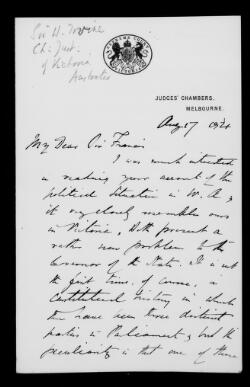 Sir W. Irvine
Ch: Just.
of Victoria
Australia
JUDGES' CHAMBERS,
MELBOURNE.
Aug 17 1924
My Dear Sir Francis
I was much interested
in reading your account of the
political situation in W. A. &
it very closely resembles ours
in Victoria, Both present a
rather new problem to the
Governor of the State. It is not
the first time, of course, in
Constitutional history in which
there have been three distinct
parties in Parliament, but the
peculiarity is that one of these